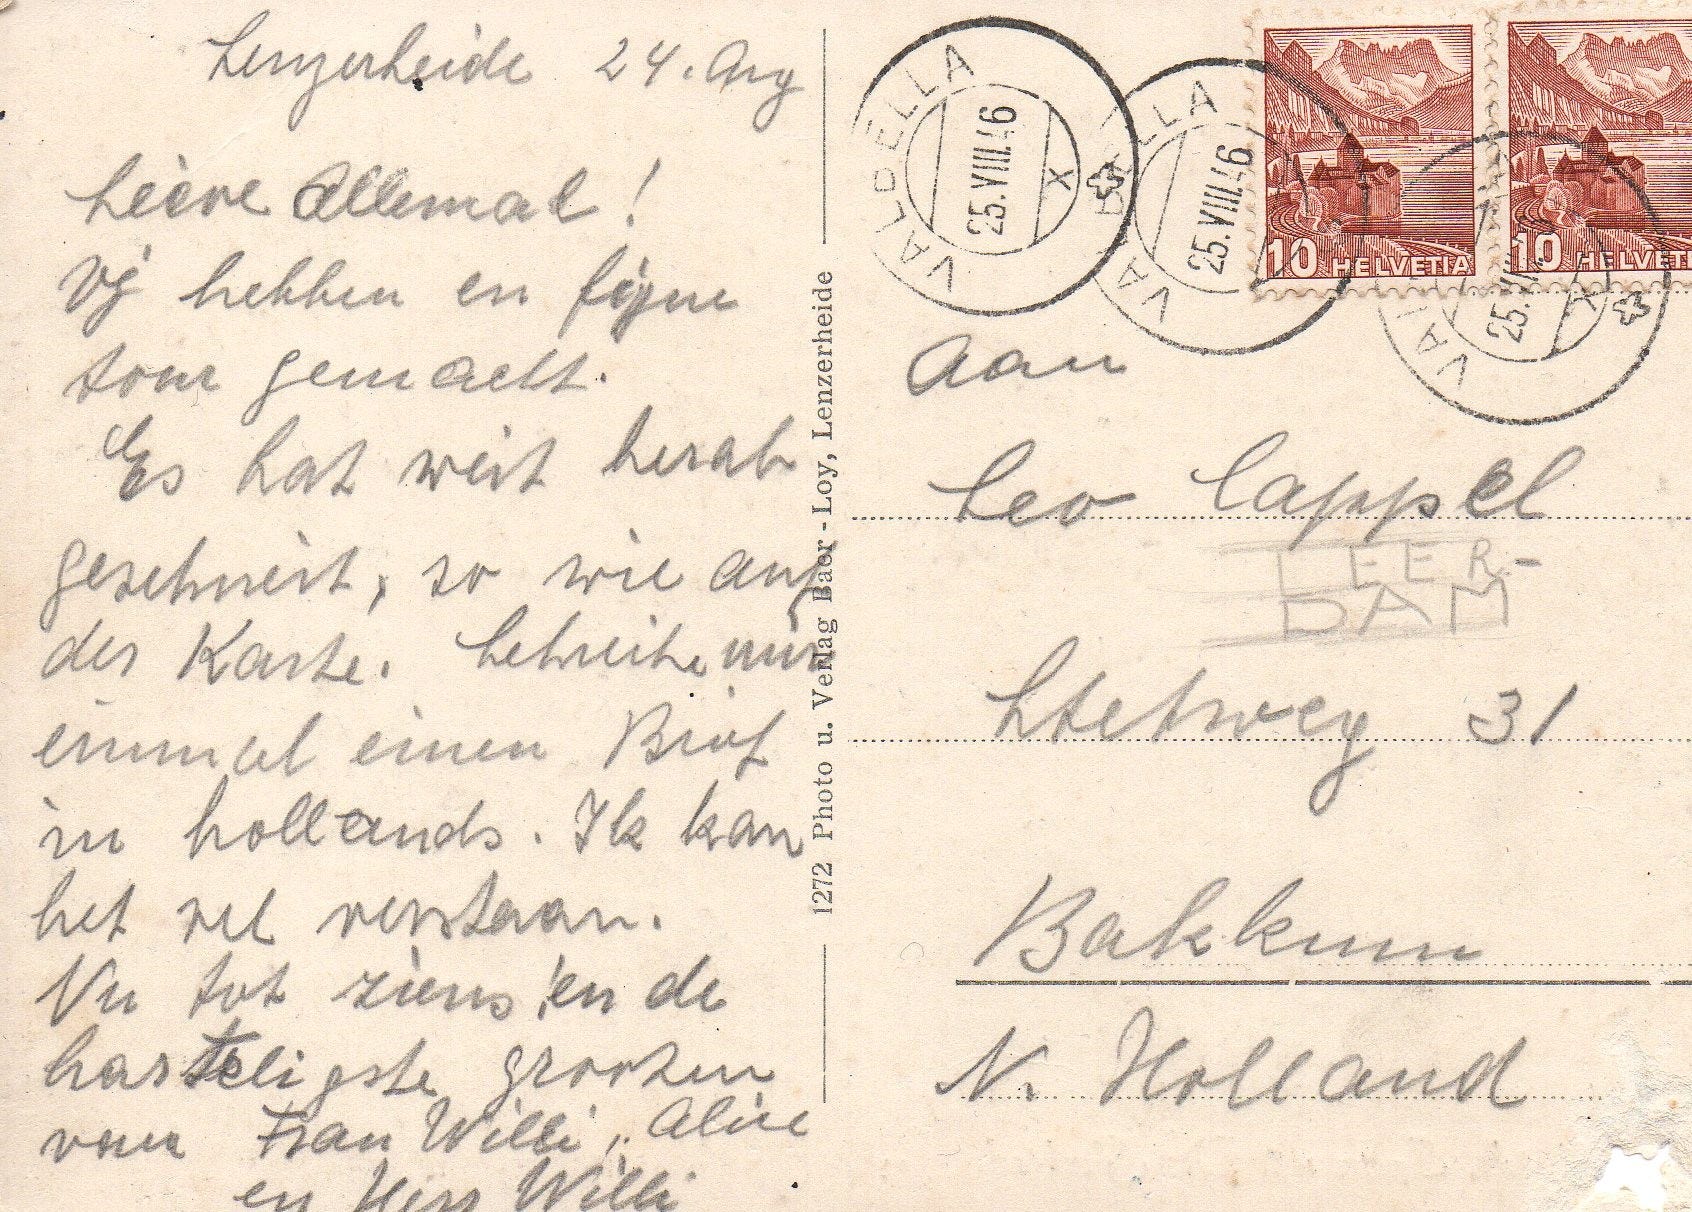 Lenzerheide 24. Aug
Leeve Allemal!
Vij hebben en feyne
tour gemacht.
Es hat weit herab
geschneit, so wie auf
der Karte. Schreibe mir
einmal einen Brief
in hollands. Ik kan
het vel verstaan.
Nu tot ziens en de
harteligste grooten
von Frau Willi, Alice
en Herr Willi
1272 Photo u. Verlag Baer-Loy, Lenzerheide
VALBELLA
25.VIII.46
X
VALBELLA
25.VIII.46
25.VIII.
X
10 HELVETIA
10 HELVETI
aan
Leo Cappel
LEER-
DAM
31
Bakkum
N. Holland